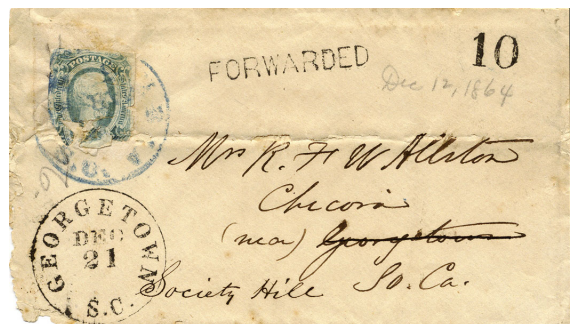 POSTAGE
FORWARDED
10
Dec 12, 1864
S.C.
Mrs R. F W Allston
Chicora
(near) Georgetown
Society Hill So. Ca.
GEORGETOWN
DEC
21
S.C.